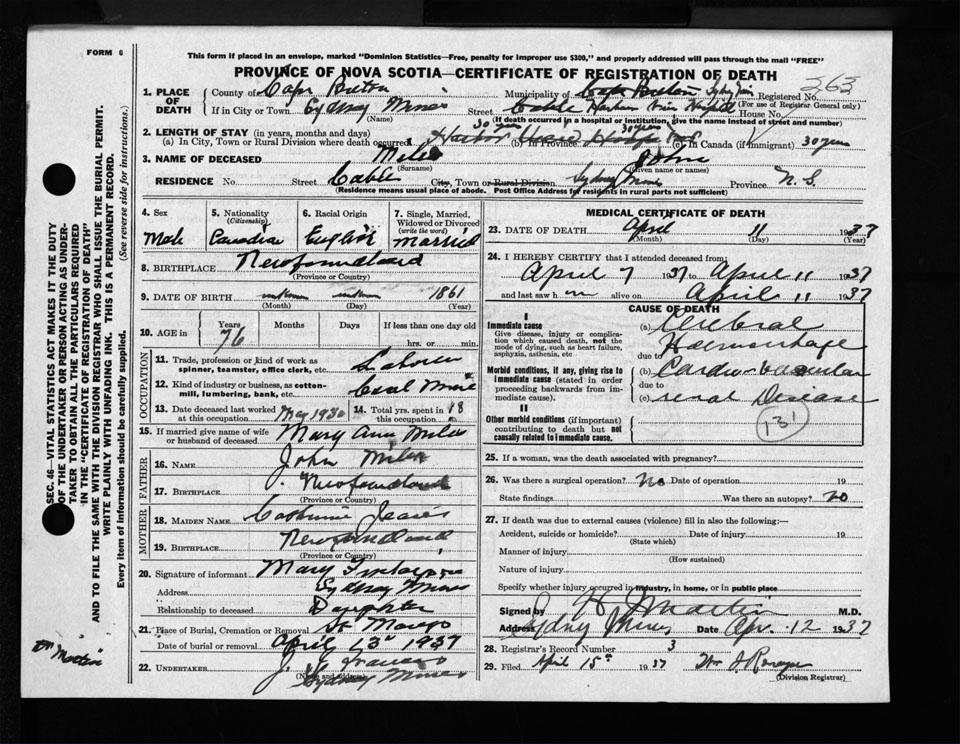 FORM 6
This form if placed in an envelope, marked "Dominion Statistics—Free, penalty for improper use $300," and properly addressed will pass through the mail "FREE"
PROVINCE OF NOVA SCOTIA—CERTIFICATE OF REGISTRATION OF DEATH
263
1. PLACE OF DEATH
County of Cape Breton Municipality of Cape Breton Registered No.
(For use of Registrar General only)
If in City or Town Sydney Mines Street Cable House No.
(Name) (If death occurred in a hospital or institution, give the name instead of street and number)
2. LENGTH OF STAY (in years, months and days)
(a) In City, Town or Rural Division where death occurred 30 years (b) in Province 30 years (c) in Canada (if immigrant) 30 years
3. NAME OF DECEASED Miles John
(Surname) (Given name or names)
RESIDENCE No. Street Cable City, Town or Rural Division Sydney Mines Province N. S.
(Residence means usual place of abode. Post Office Address for residents in rural parts not sufficient)
4. Sex Male
5. Nationality (Citizenship) Canadian
6. Racial Origin English
7. Single, Married, Widowed or Divorced (write the word) Married
8. BIRTHPLACE Newfoundland
(Province or Country)
9. DATE OF BIRTH unknown unknown 1861
(Month) (Day) (Year)
10. AGE in Years 76 Months Days If less than one day old
hrs. or min.
OCCUPATION
11. Trade, profession or kind of work as spinner, teamster, office clerk, etc. Laborer
12. Kind of industry or business, as cotton-mill, lumbering, bank, etc. Coal Mine
13. Date deceased last worked at this occupation May 1930
14. Total yrs. spent in this occupation 18
15. If married give name of wife or husband of deceased Mary Ann Miles
FATHER
16. NAME John Miles
17. BIRTHPLACE Newfoundland
(Province or Country)
MOTHER
18. MAIDEN NAME Catherine
19. BIRTHPLACE Newfoundland
(Province or Country)
20. Signature of informant Mary
Address Sydney Mines
Relationship to deceased Daughter
21. Place of Burial, Cremation or Removal St
Date of burial or removal April 13 1937
22. UNDERTAKER J.
(Name and address) Sydney Mines
MEDICAL CERTIFICATE OF DEATH
23. DATE OF DEATH April 11 1937
(Month) (Day) (Year)
24. I HEREBY CERTIFY that I attended deceased from:
April 7 1937 to April 11 1937
and last saw him alive on April 11 1937
CAUSE OF DEATH
I
Immediate cause
Give disease, injury or complication which caused death, not the mode of dying, such as heart failure, asphyxia, asthenia, etc
(a) Cerebral Haemorrhage
due to
Morbid conditions, if any, giving rise to immediate cause (stated in order proceeding backwards from immediate cause).
(b) Cardio-vascular
due to
(c) renal Disease
II
Other morbid conditions (if important) contributing to death but not causally related to immediate cause.
131
25. If a woman, was the death associated with pregnancy?
26. Was there a surgical operation? No Date of operation 19
State findings Was there an autopsy? no
27. If death was due to external causes (violence) fill in also the following:—
Accident, suicide or homicide? Date of injury 19
(State which)
Manner of injury
(How sustained)
Nature of injury
Specify whether injury occurred in industry, in home, or in public place
Signed by Martin M.D.
Address Sydney Mines Date Apr. 12 1937
28. Registrar's Record Number 3
29. Filed April 15th 1937
(Division Registrar)
SEC. 46—VITAL STATISTICS ACT MAKES IT THE DUTY
OF THE UNDERTAKER OR PERSON ACTING AS UNDERTAKER TO OBTAIN ALL THE PARTICULARS REQUIRED
IN THE "CERTIFICATE OF REGISTRATION OF DEATH"
AND TO FILE THE SAME WITH THE DIVISION REGISTRAR WHO SHALL ISSUE THE BURIAL PERMIT.
WRITE PLAINLY WITH UNFADING INK. THIS IS A PERMANENT RECORD.
Every item of information should be carefully supplied. (See reverse side for instructions.)
Dr Martin